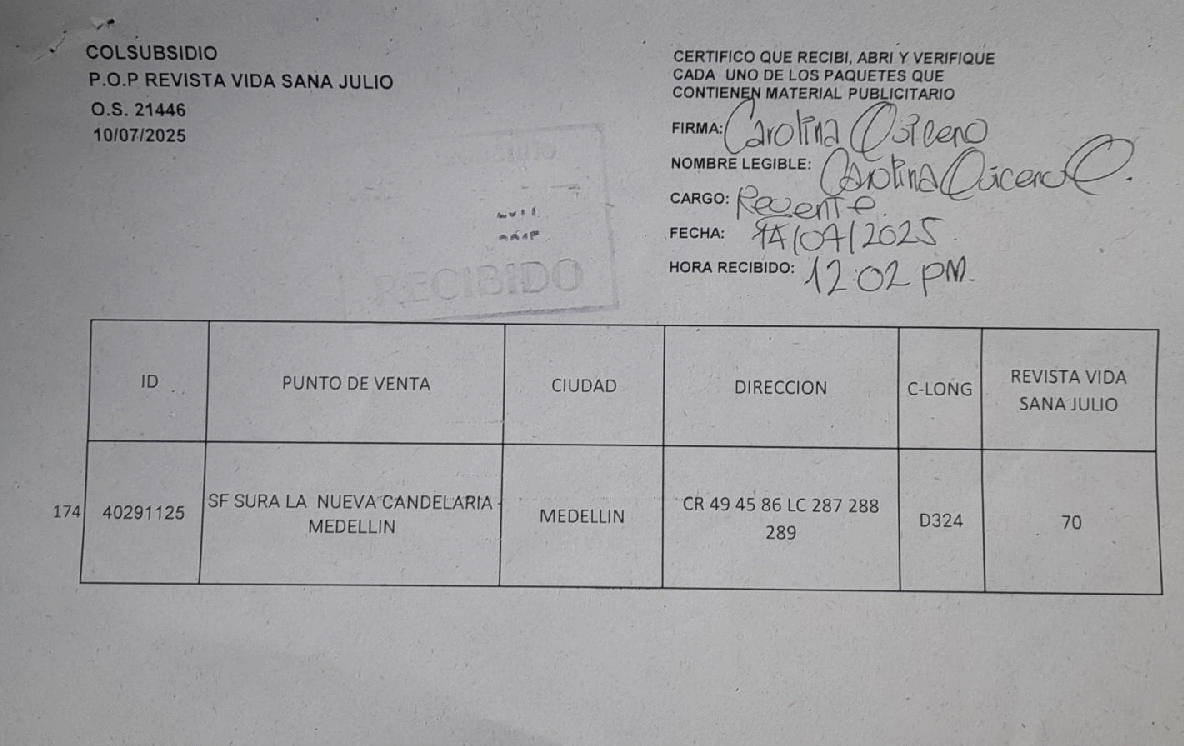 COLSUBSIDIO
P.O.P REVISTA VIDA SANA JULIO
O.S. 21446
10/07/2025
CERTIFICO QUE RECIBI, ABRI Y VERIFIQUE
CADA UNO DE LOS PAQUETES QUE
CONTIENEN MATERIAL PUBLICITARIO
FIRMA: Carolina
NOMBRE LEGIBLE: Carolina
CARGO:
FECHA: 14/07/2025
HORA RECIBIDO: 12:02 PM.
RECIBIDO
ID
PUNTO DE VENTA
CIUDAD
DIRECCION
C-LONG
REVISTA VIDA
SANA JULIO
174
40291125
SF SURA LA NUEVA CANDELARIA -
MEDELLIN
MEDELLIN
CR 49 45 86 LC 287 288
289
D324
70